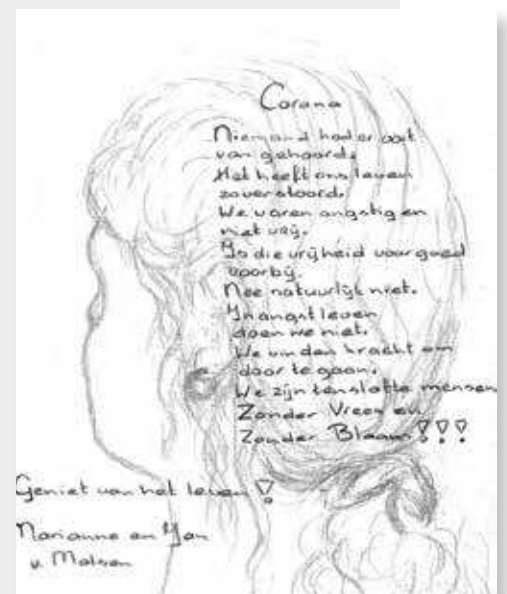 Corona
Niemand had er ooit
van gehoord.
Het heeft ons leven
zo verstoord.
We waren angstig en
niet vrij.
Is die vrijheid voorgoed
voorbij.
Nee natuurlijk niet.
In angst leven
doen we niet.
We vinden kracht om
door te gaan.
We zijn tenslotte mensen
Zonder Vrees en
Zonder Blaam!!!
Geniet van het leven!
Marianne en Jan
v. Malsen